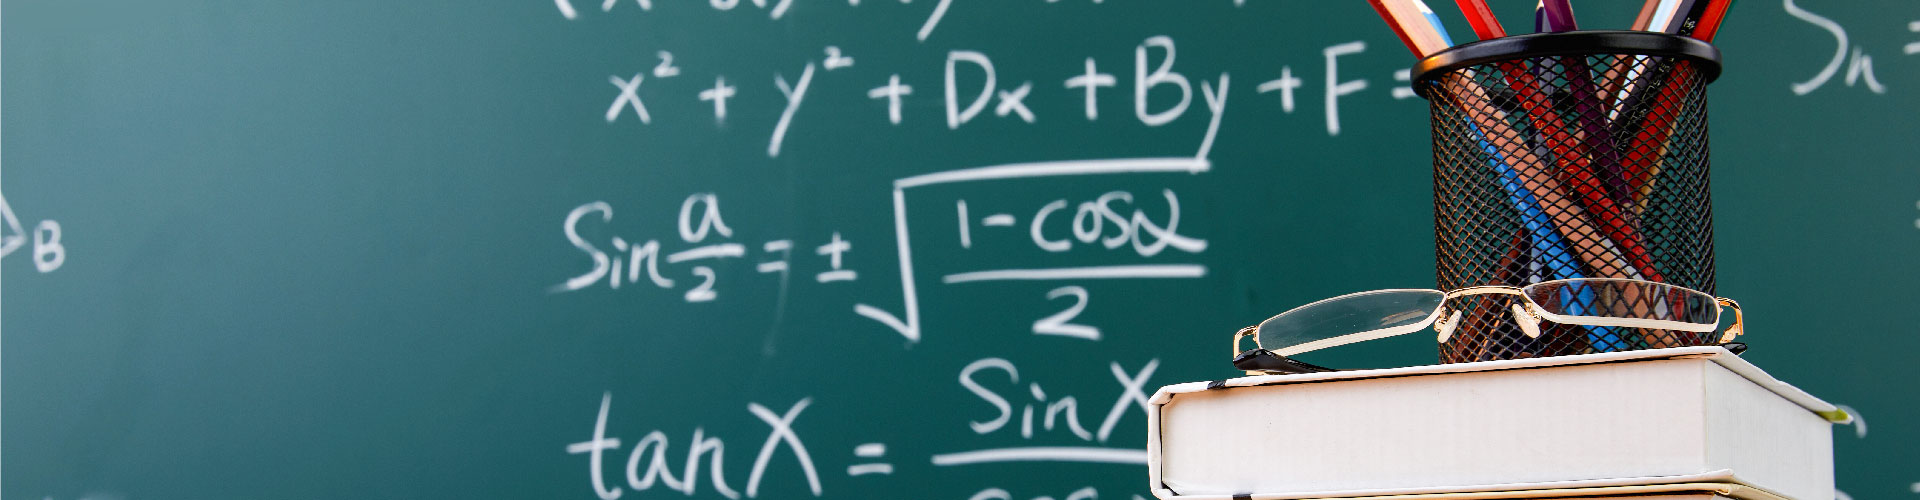 x² + y² + Dx + By + F =
Sin a/2 = ± √(1 - cosα / 2)
tanX = SinX
Sn =
B